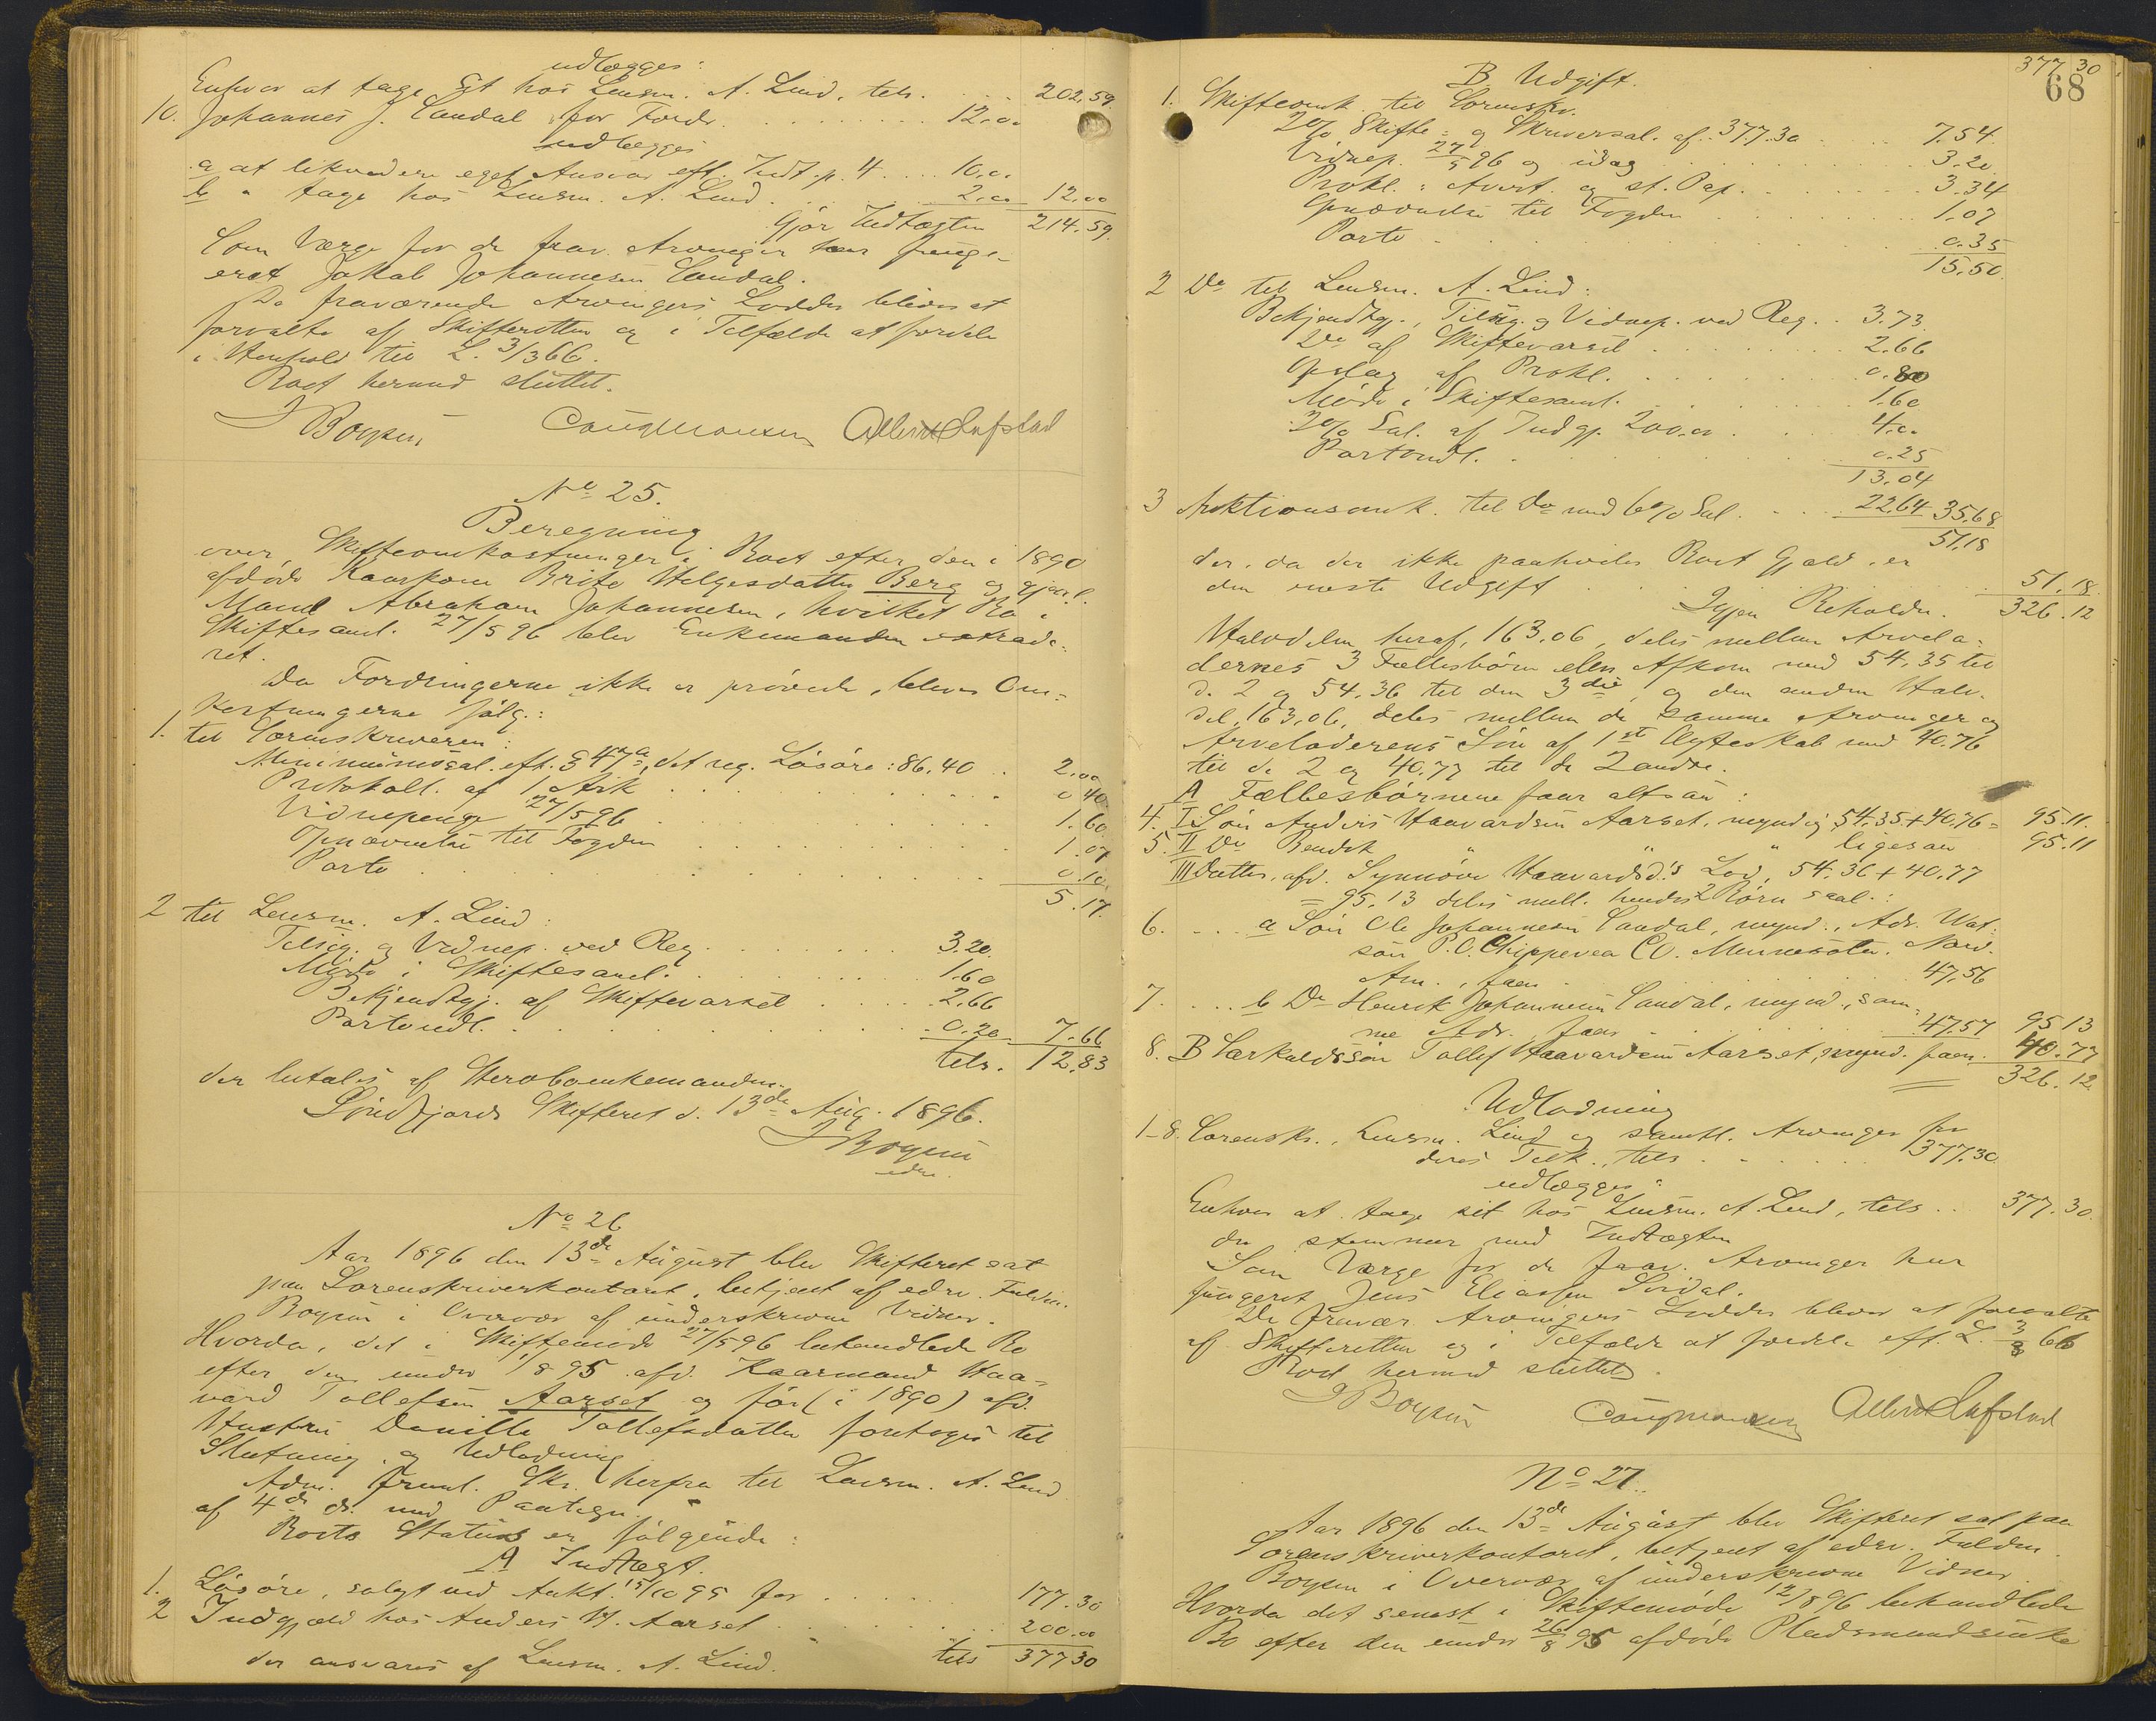 udlægges:
Enhver at tage sit hos Lensm. A. Lind, tels. . . . 202.59.
10. Johannes J. Sandal for Fordr. . . . 12.00
udlægges
a at likvidere eget Ansvar eft. Indt. p. 4 . . . 10.00
b " tage hos Lensm. A. Lind . . . 2.00 12.00
Gjør Indtægten 214.59.
Som Værge for de frav. Arvinger har funge-
eret Jakob Johannesen Sandal.
De fraværende Arvingers Lodder bliver at
forvalte af Skifteretten og i Tilfælde at fordele
i Henhold til L. 3/3 66.
Boet hermed sluttet.
J Boysen
No 25.
Beregning
over Skifteomkostninger i Boet efter den i 1890
afdøde Kaarkone Brite Helgesdatter Berg og gjenl.
Mand Abraham Johannesen, hvilket Bo i
Skiftesaml. 27/5 96 blev Enkemanden extrade-
ret.
Da Fordringerne ikke er prøvede, bliver Om-
kostningerne følg.:
1. til Sorenskriveren:
Minimumssal. eft. § 47 a, det reg. Løsøre: 86.40 . . 2.00
Protokoll. af 1 Ark . . . 0.40
Vidnepenge 27/5 96 . . . 1.60
Opnævnelse til Fogden . . . 1.07
Porto . . . 0.10
5.17.
2 til Lensm. A. Lind:
Tilsig. og Vidnep. ved Reg. . . . 3.20.
Møde i Skiftesaml. . . . 1.60
Bekjendtgj. af Skiftevarsel . . . 2.66
Portoudl. . . . 0.20 7.66
tels. 12.83
der betales af Sterboenkemanden.
Søndfjords Skifteret d. 13de Aug. 1896.
J Boysen
edsv.
No 26
Aar 1896 den 13de August blev Skifteret sat
paa Sorenskriverkontoret, betjent af edsv. Fuldm.
Boysen i Overvær af underskrevne Vidner.
Hvorda, det i Skiftemøde 27/5 96 behandlede Bo
efter den under 1895 afd. Kaarmand Haa-
vard Tollefsen Aarset og før (i 1890) afd.
Hustru Danille Tollefsdatter foretoges til
Slutning og Udlodning
Adm. freml. Skr. herfra til Lensm. A. Lind
af 4de ds. med Paategn.
Boets Status er følgende:
A Indtægt.
1. Løsøre, solgt ved Aukt. 15/10 95 for . . . 177.30
2 Indgjæld hos Anders H. Aarset . . . 200.00
der ansvares af Lensm. A. Lind. tels 377 30
377 30
68
B Udgift.
1. Skifteomk. til Sorenskr.
2% Skifte- og Skriversal. af 377.30 . . . 7.54.
Vidnep. 27/5 96 og idag . . . 3.20.
Prokl.: Avert. og st. Pap. . . . 3.34
Opnævnelse til Fogden . . . 1.07
Porto . . . 0.35
15.50.
2 Do til Lensm. A. Lind:
Bekjendtgj., Tilsig. og Vidnep. ved Reg. . . 3.73.
Do af Skiftevarsel . . . 2.66
Opslag af Prokl. . . . 0.80
Møde i Skiftesaml. . . . 1.60
2% Sal. af Indgj. 200.00 . . . 4.00
Portoudl. . . . 0.25
13.04
3 Auktionsomk. til Do med 6% Sal. . . . 22.64 35.68
51.18
der, da der ikke paahviler Boet Gjæld, er
den eneste Udgift . . . 51.18.
Igjen Beholdn. 326.12
Halvdelen heraf, 163.06, deles mellem Arvela-
dernes 3 Fællesbørn eller Afkom med 54.35 til
de 2 og 54.36 til den 3die, og den anden Halv-
del, 163.06, deles mellem de samme Arvinger og
Arveladerens Søn af 1st Ægteskab med 40.76
til de 2 og 40.77 til de 2 andre.
A Fællesbørnene faar altsaa:
4. I Søn Anders Haavardsen Aarset, myndig, 54.35 + 40.76 = 95.11.
5. II Do Bendik " " " ligesaa 95.11
III Datter, afd. Synnøve Haavardsd.'s Lod, 54.36 + 40.77
= 95.13 deles mell. hendes 2 Børn saal.:
6. . . . a Søn Ole Johannesen Sandal, mynd., Adr. Wat-
son P.O. Chippewa Co. Minnesota, Nord-
Am., faar . . . 47.56
7. . . . b Do Henrik Johannesen Sandal, mynd., sam-
me Adr., faar . . . 47.57 95.13
8. B Særkuldssøn Tollef Haavardsen Aarset, mynd. faar . 40.77
326.12
Udlodning
1-8. Sorenskr., Lensm. Lind og samtl. Arvinger for
deres Tilk., tels . . . 377.30
udlægges:
Enhver at tage sit hos Lensm. A. Lind, tels . . 377.30.
der stemmer med Indtægten
Som Værge for de frav. Arvinger har
fungeret Jens Eliassen Sordal.
De fravær. Arvingers Lodder bliver at forvalte
af Skifteretten og i Tilfælde at fordele eft. L. 3/3 66
Boet hermed sluttet.
J Boysen
No 27.
Aar 1896 den 13de August blev Skifteret sat paa
Sorenskriverkontoret, betjent af edsv. Fuldm.
Boysen i Overvær af underskrevne Vidner.
Hvorda det senest i Skiftemøde 12/8 96 behandlede
Bo efter den under 26/8 95 afdøde Pladsmandsenke